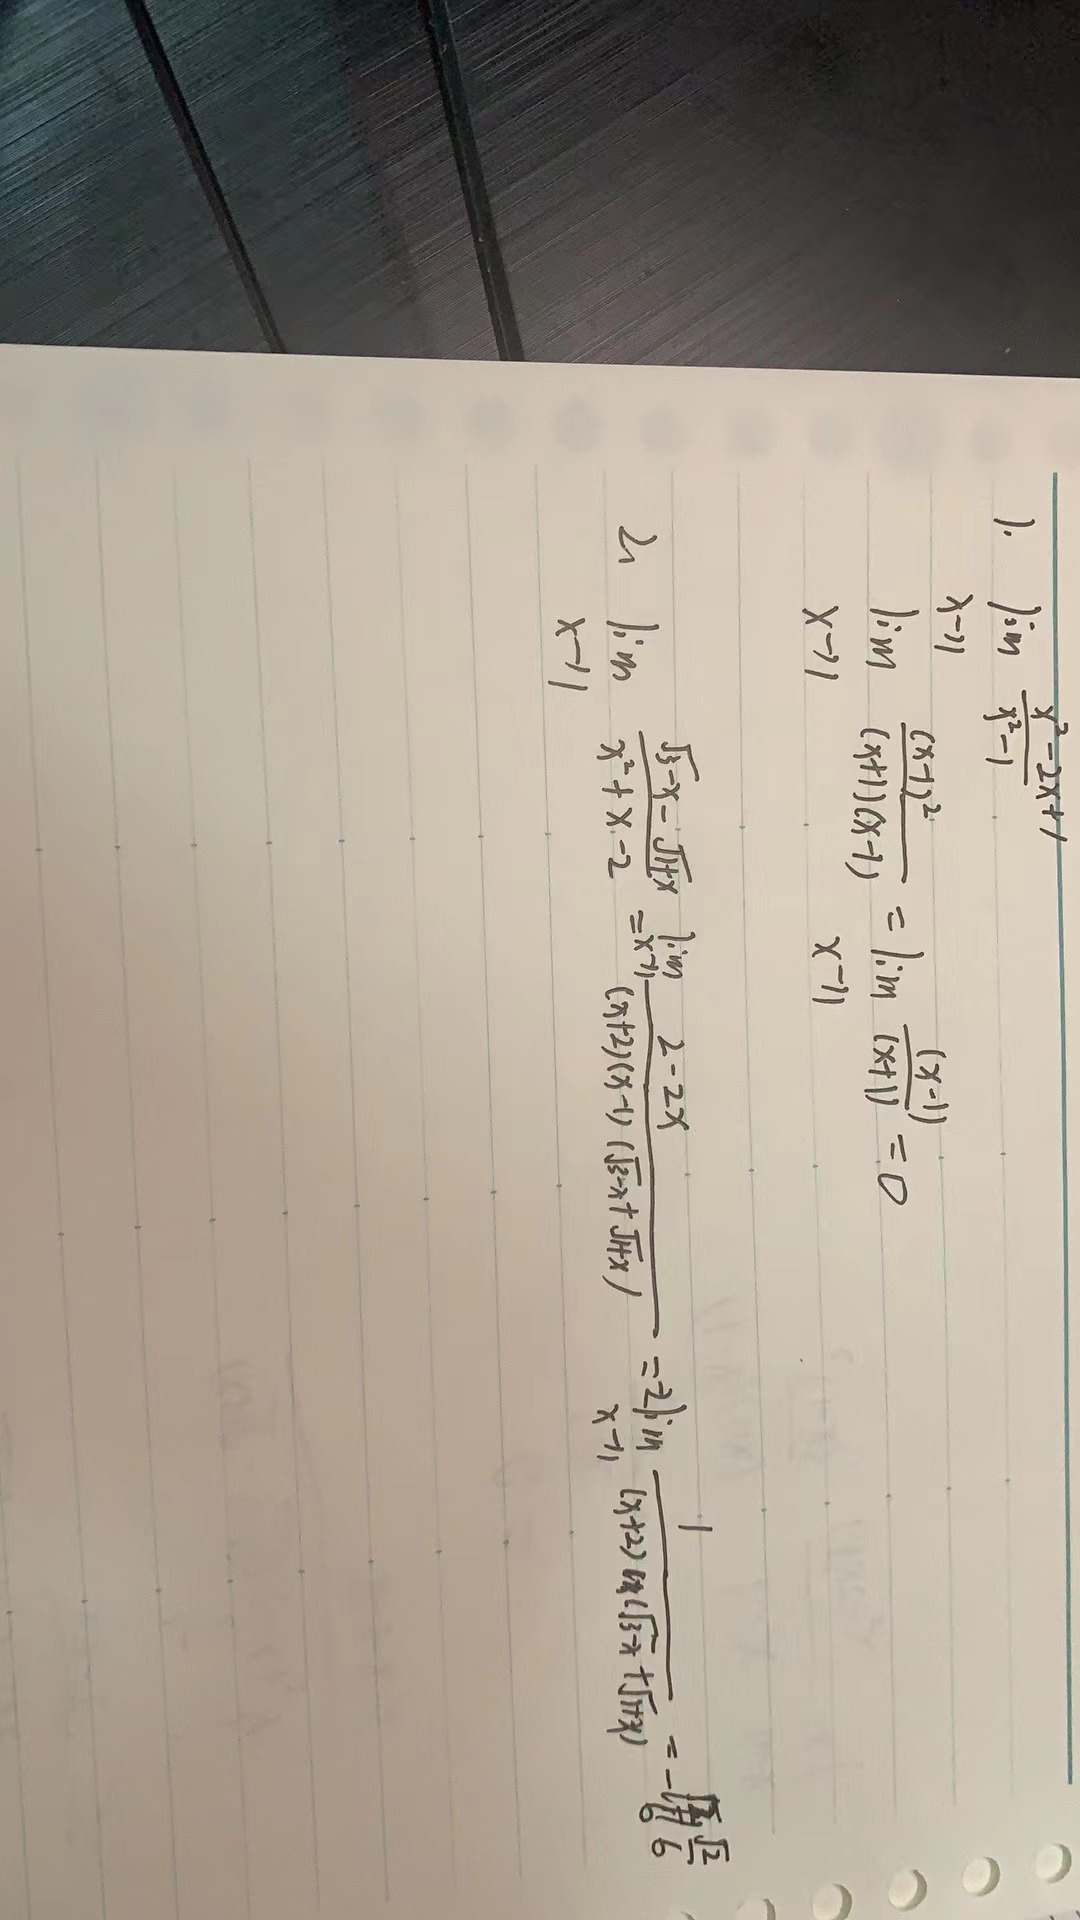 1. lim x→1 (x²-2x+1)/(x²-1)
lim x→1 (x-1)²/((x+1)(x-1)) = lim x→1 (x-1)/(x+1) = 0
2, lim x→1 (√3-x - √1+x)/(x²+x-2) = lim x→1 (2-2x)/((x+2)(x-1)(√3-x + √1+x)) = -2 lim x→1 1/((x+2)(√3-x + √1+x)) = - √2/6